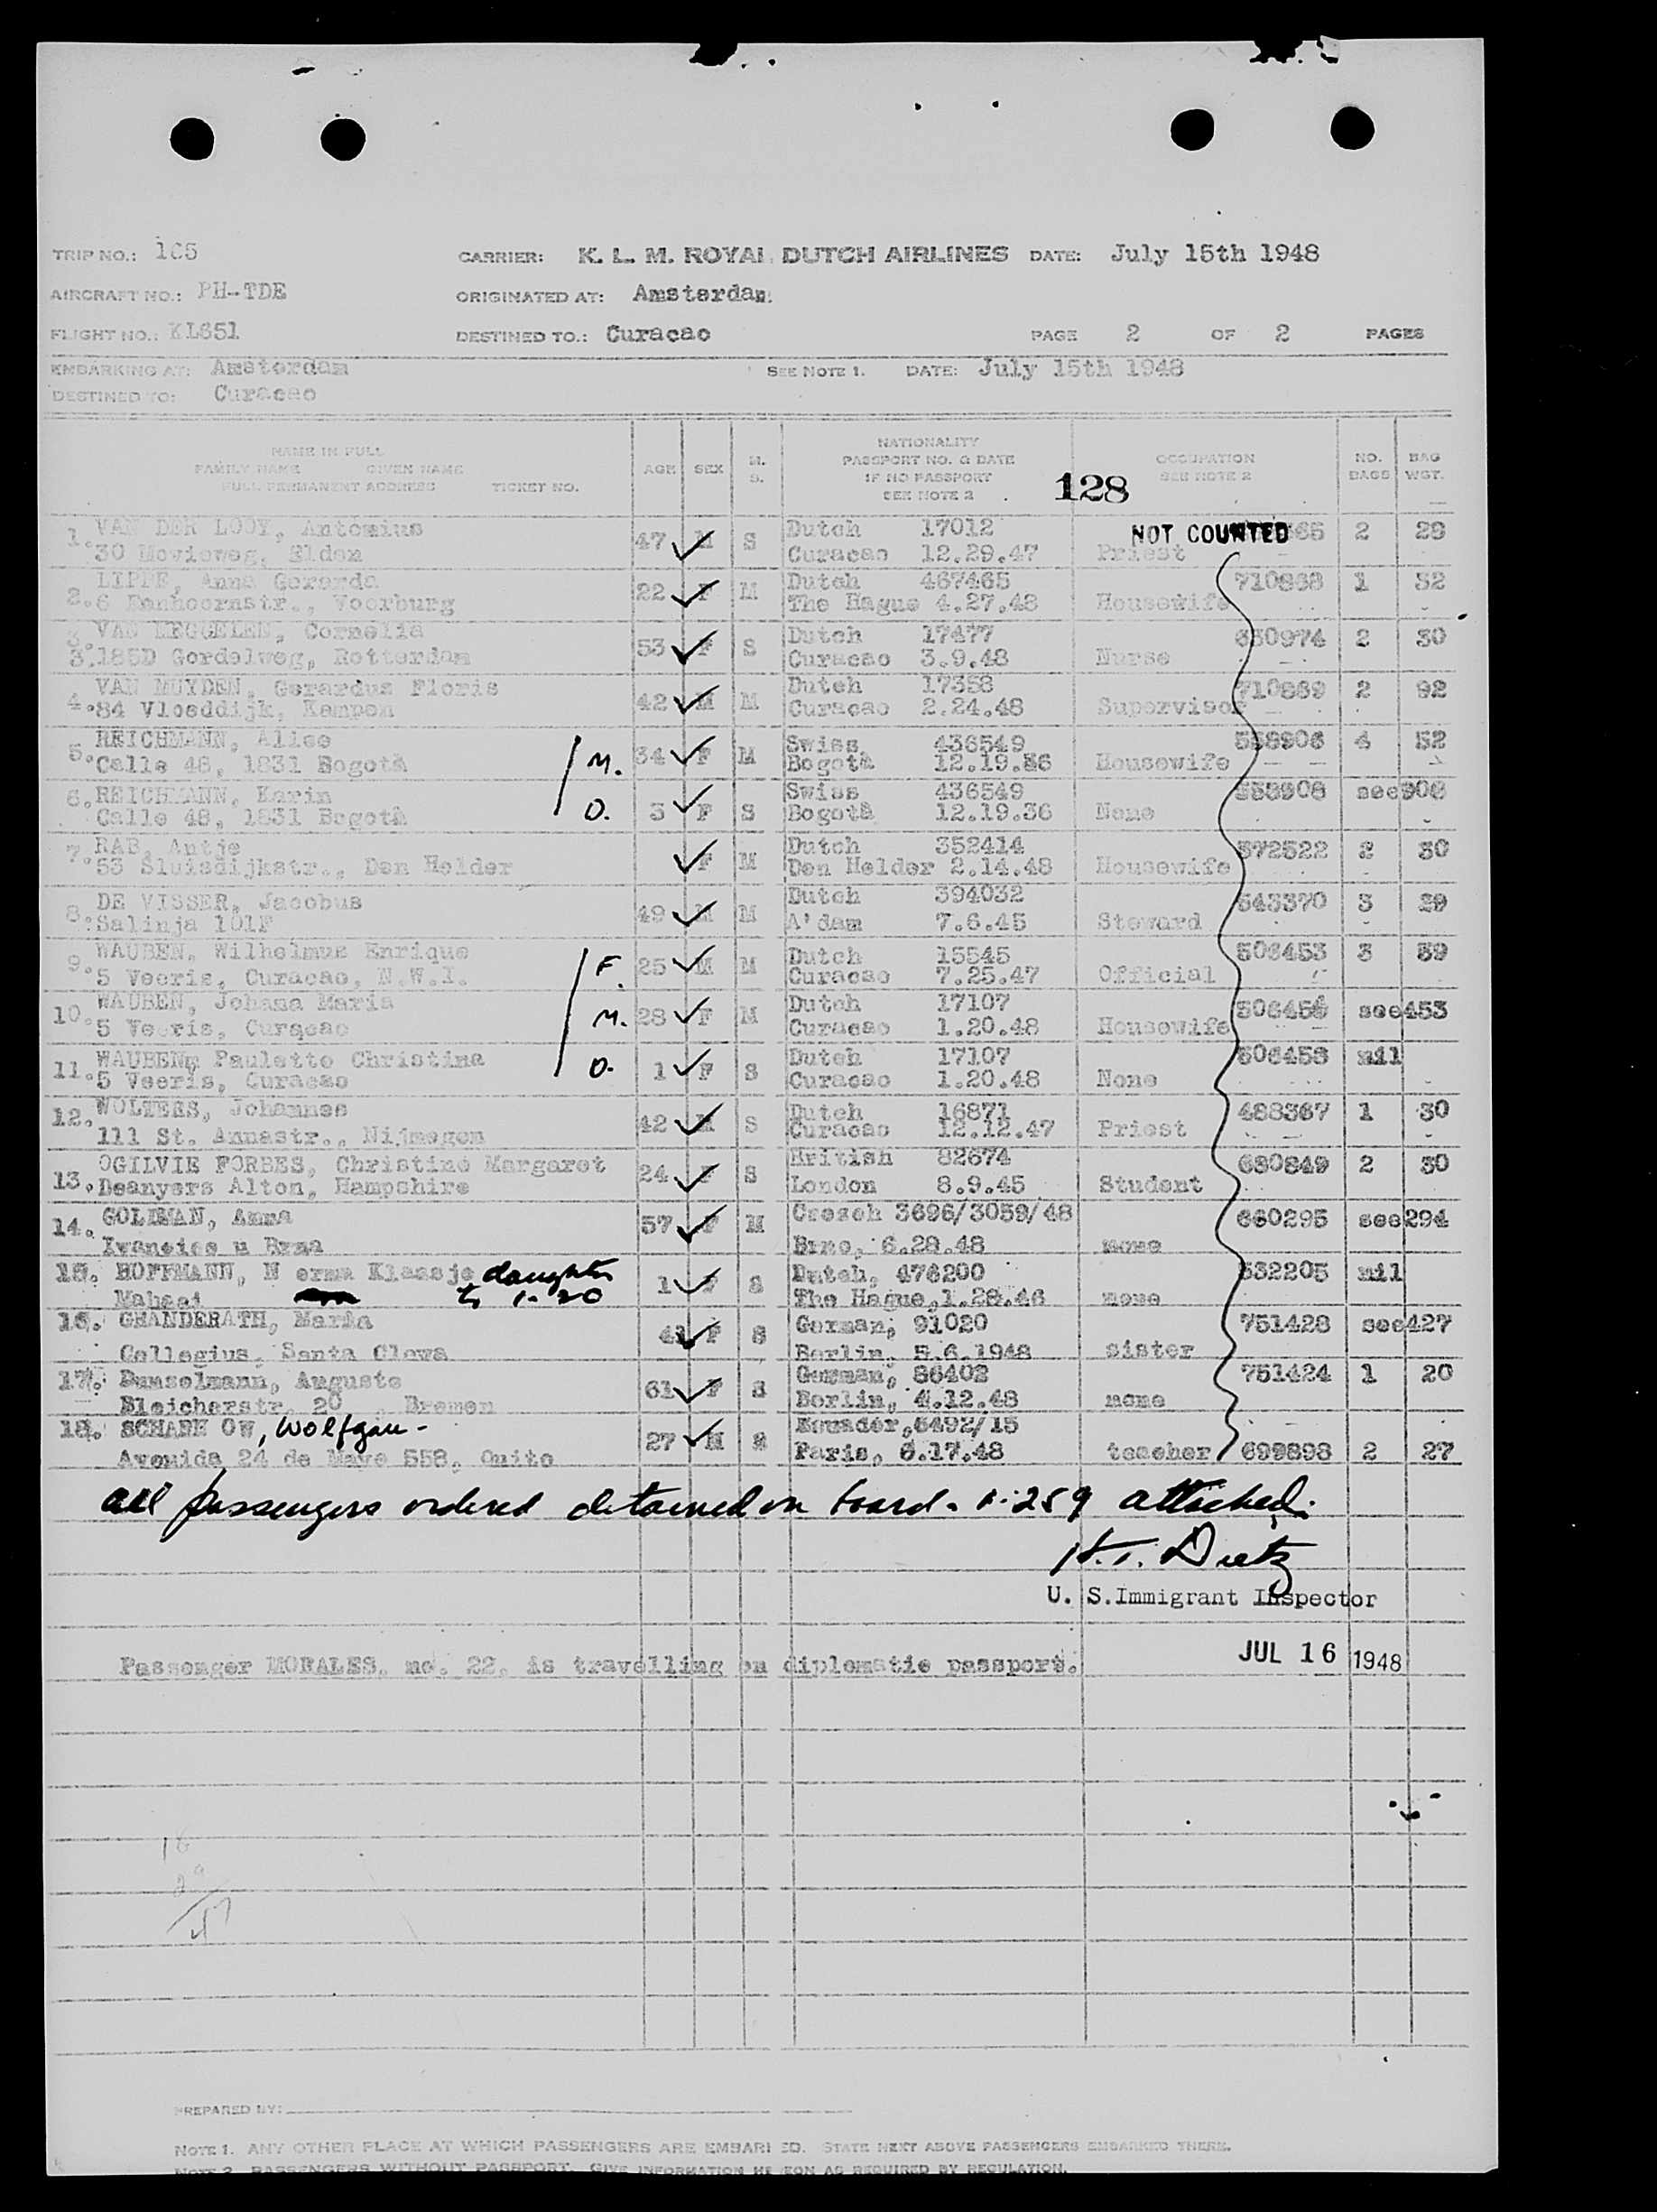 TRIP NO.: 105 CARRIER: K. L. M. ROYAL DUTCH AIRLINES DATE: July 15th 1948
AIRCRAFT NO.: PH-TDE ORIGINATED AT: Amsterdam
FLIGHT NO.: KL651 DESTINED TO.: Curacao PAGE 2 OF 2 PAGES
EMBARKING AT: Amsterdam SEE NOTE 1. DATE: July 15th 1948
DESTINED TO: Curacao
NAME IN FULL
FAMILY NAME GIVEN NAME
FULL PERMANENT ADDRESS TICKET NO.
AGE SEX M. S.
NATIONALITY
PASSPORT NO. & DATE
IF NO PASSPORT
SEE NOTE 2
128
OCCUPATION
SEE NOTE 2
NO. BAGS
BAG WGT.
NOT COUNTED
1. VAN DER LOOY, Antonius 47 M S Dutch 17012 2 29
30 Mevieweg, Elden Curacao 12.29.47 Priest
2. LIPPE, Anna Gererda 22 F M Dutch 467465 710868 1 32
6 Banhoornstr., Voorburg The Hague 4.27.48 Housewife
3. VAN MEGGELEN, Cornelia 53 F S Dutch 17477 650974 2 30
3. 185D Gordelweg, Rotterdam Curacao 3.9.48 Nurse
4. VAN MUYDEN, Gerardus Floris 42 M M Dutch 17358 710869 2 92
84 Vloeddijk, Kampen Curacao 2.24.48 Supervisor
5. REICHMANN, Alice M. 34 F M Swiss 436549 558906 4 52
Calle 48, 1831 Bogotà Bogotà 12.19.36 Housewife
6. REICHMANN, Karin D. 3 F S Swiss 436549 558908 see906
Calle 48, 1831 Bogotà Bogotà 12.19.36 None
7. RAB, Antje F M Dutch 352414 572522 2 30
53 Sluisdijkstr., Den Helder Den Helder 2.14.48 Housewife
8. DE VISSER, Jacobus 49 M M Dutch 394032 543370 3 29
Salinja 101F A'dam 7.6.45 Steward
9. WAUBEN, Wilhelmus Enrique F. 25 M M Dutch 15545 506453 3 39
5 Veeris, Curacao, N.W.I. Curacao 7.25.47 Official
10. WAUBEN, Johana Maria M. 28 F M Dutch 17107 506454 see453
5 Veeris, Curacao Curacao 1.20.48 Housewife
11. WAUBEN, Paulette Christina D. 1 F S Dutch 17107 506453 nil
5 Veeris, Curacao Curacao 1.20.48 None
12. WOLTERS, Johannes 42 M S Dutch 16871 488367 1 30
111 St. Annastr., Nijmegen Curacao 12.12.47 Priest
13. OGILVIE FORBES, Christine Margaret 24 F S British 82674 630849 2 30
Deanyers Alton, Hampshire London 8.9.45 Student
14. GOLDMAN, Anna 57 F M Czesch 3696/3059/48 660295 see294
Brno, 6.28.48 none
15. HOFFMANN, N erma Klaasje daughter to 1-20 1 F S Dutch, 476200 532205 nil
The Hague, 1.28.46 none
16. GRANDERATH, Maria 41 F S German, 91020 751428 see427
Collegius, Santa Clowa Berlin, 5.6.1948 sister
17. Dumselmann, Auguste 61 F S German, 86402 751424 1 20
Bleicherstr. 20, Bremen Berlin, 4.12.48 none
18. SCHARE OW, Wolfgan- 27 M S Ecuador, 6492/15
Avenida 24 de Mayo 558, Quito Paris, 6.17.48 teacher 699898 2 27
all passengers ordered detained on board. I-259 attached.
H.T. Dietz
U. S.Immigrant Inspector
JUL 16 1948
Passenger MORALES, no. 22, is travelling on diplomatic passport.
18
29
47
PREPARED BY:
NOTE 1. ANY OTHER PLACE AT WHICH PASSENGERS ARE EMBARKED. STATE NEXT ABOVE PASSENGERS EMBARKED THERE.
NOTE 2. PASSENGERS WITHOUT PASSPORT. GIVE INFORMATION HEREON AS REQUIRED BY REGULATION.